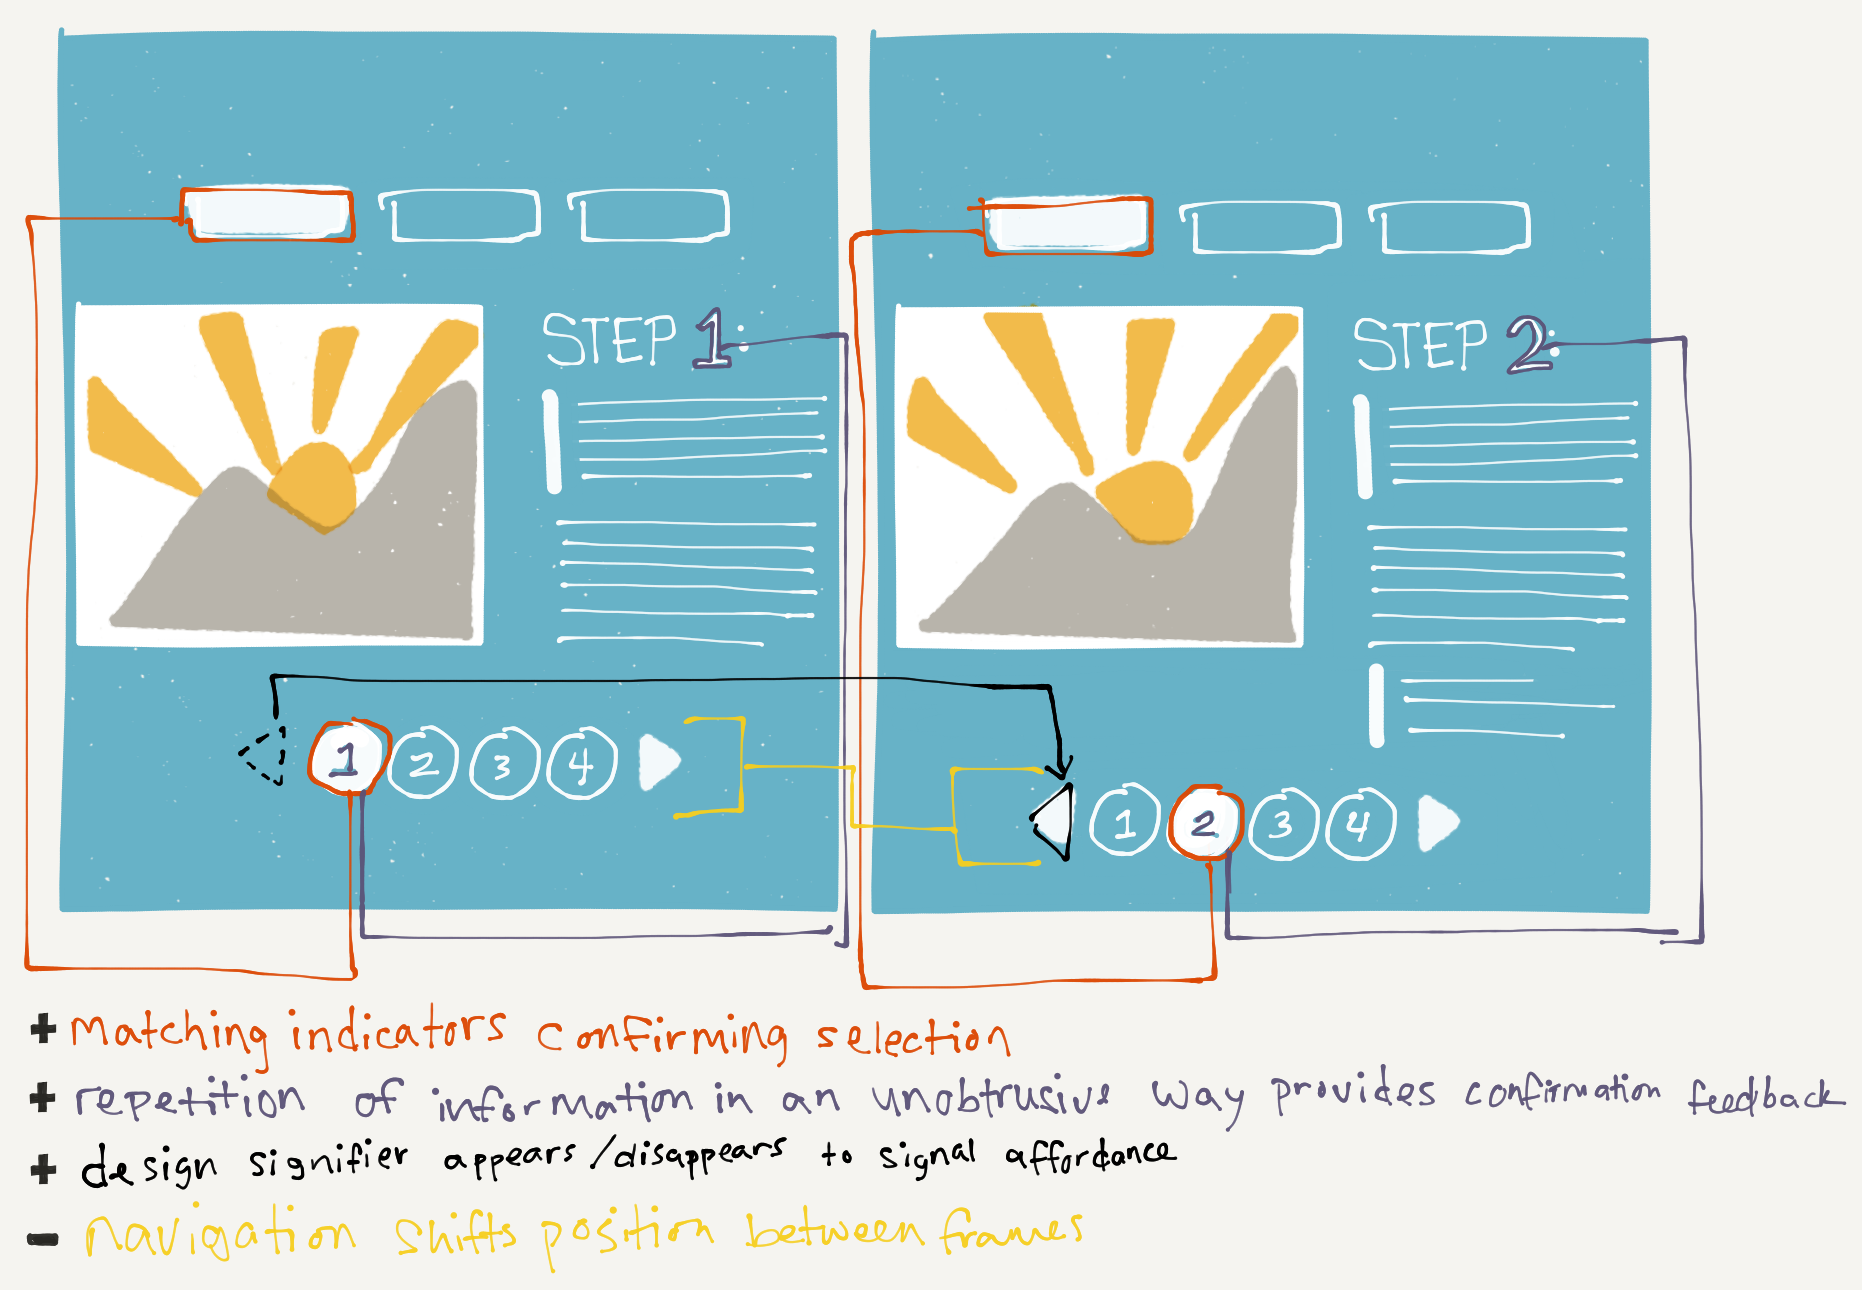 STEP 1:
STEP 2:
1 2 3 4
1 2 3 4
+ matching indicators confirming selection
+ repetition of information in an unobtrusive way provides confirmation feedback
+ design signifier appears/disappears to signal affordance
- navigation shifts position between frames